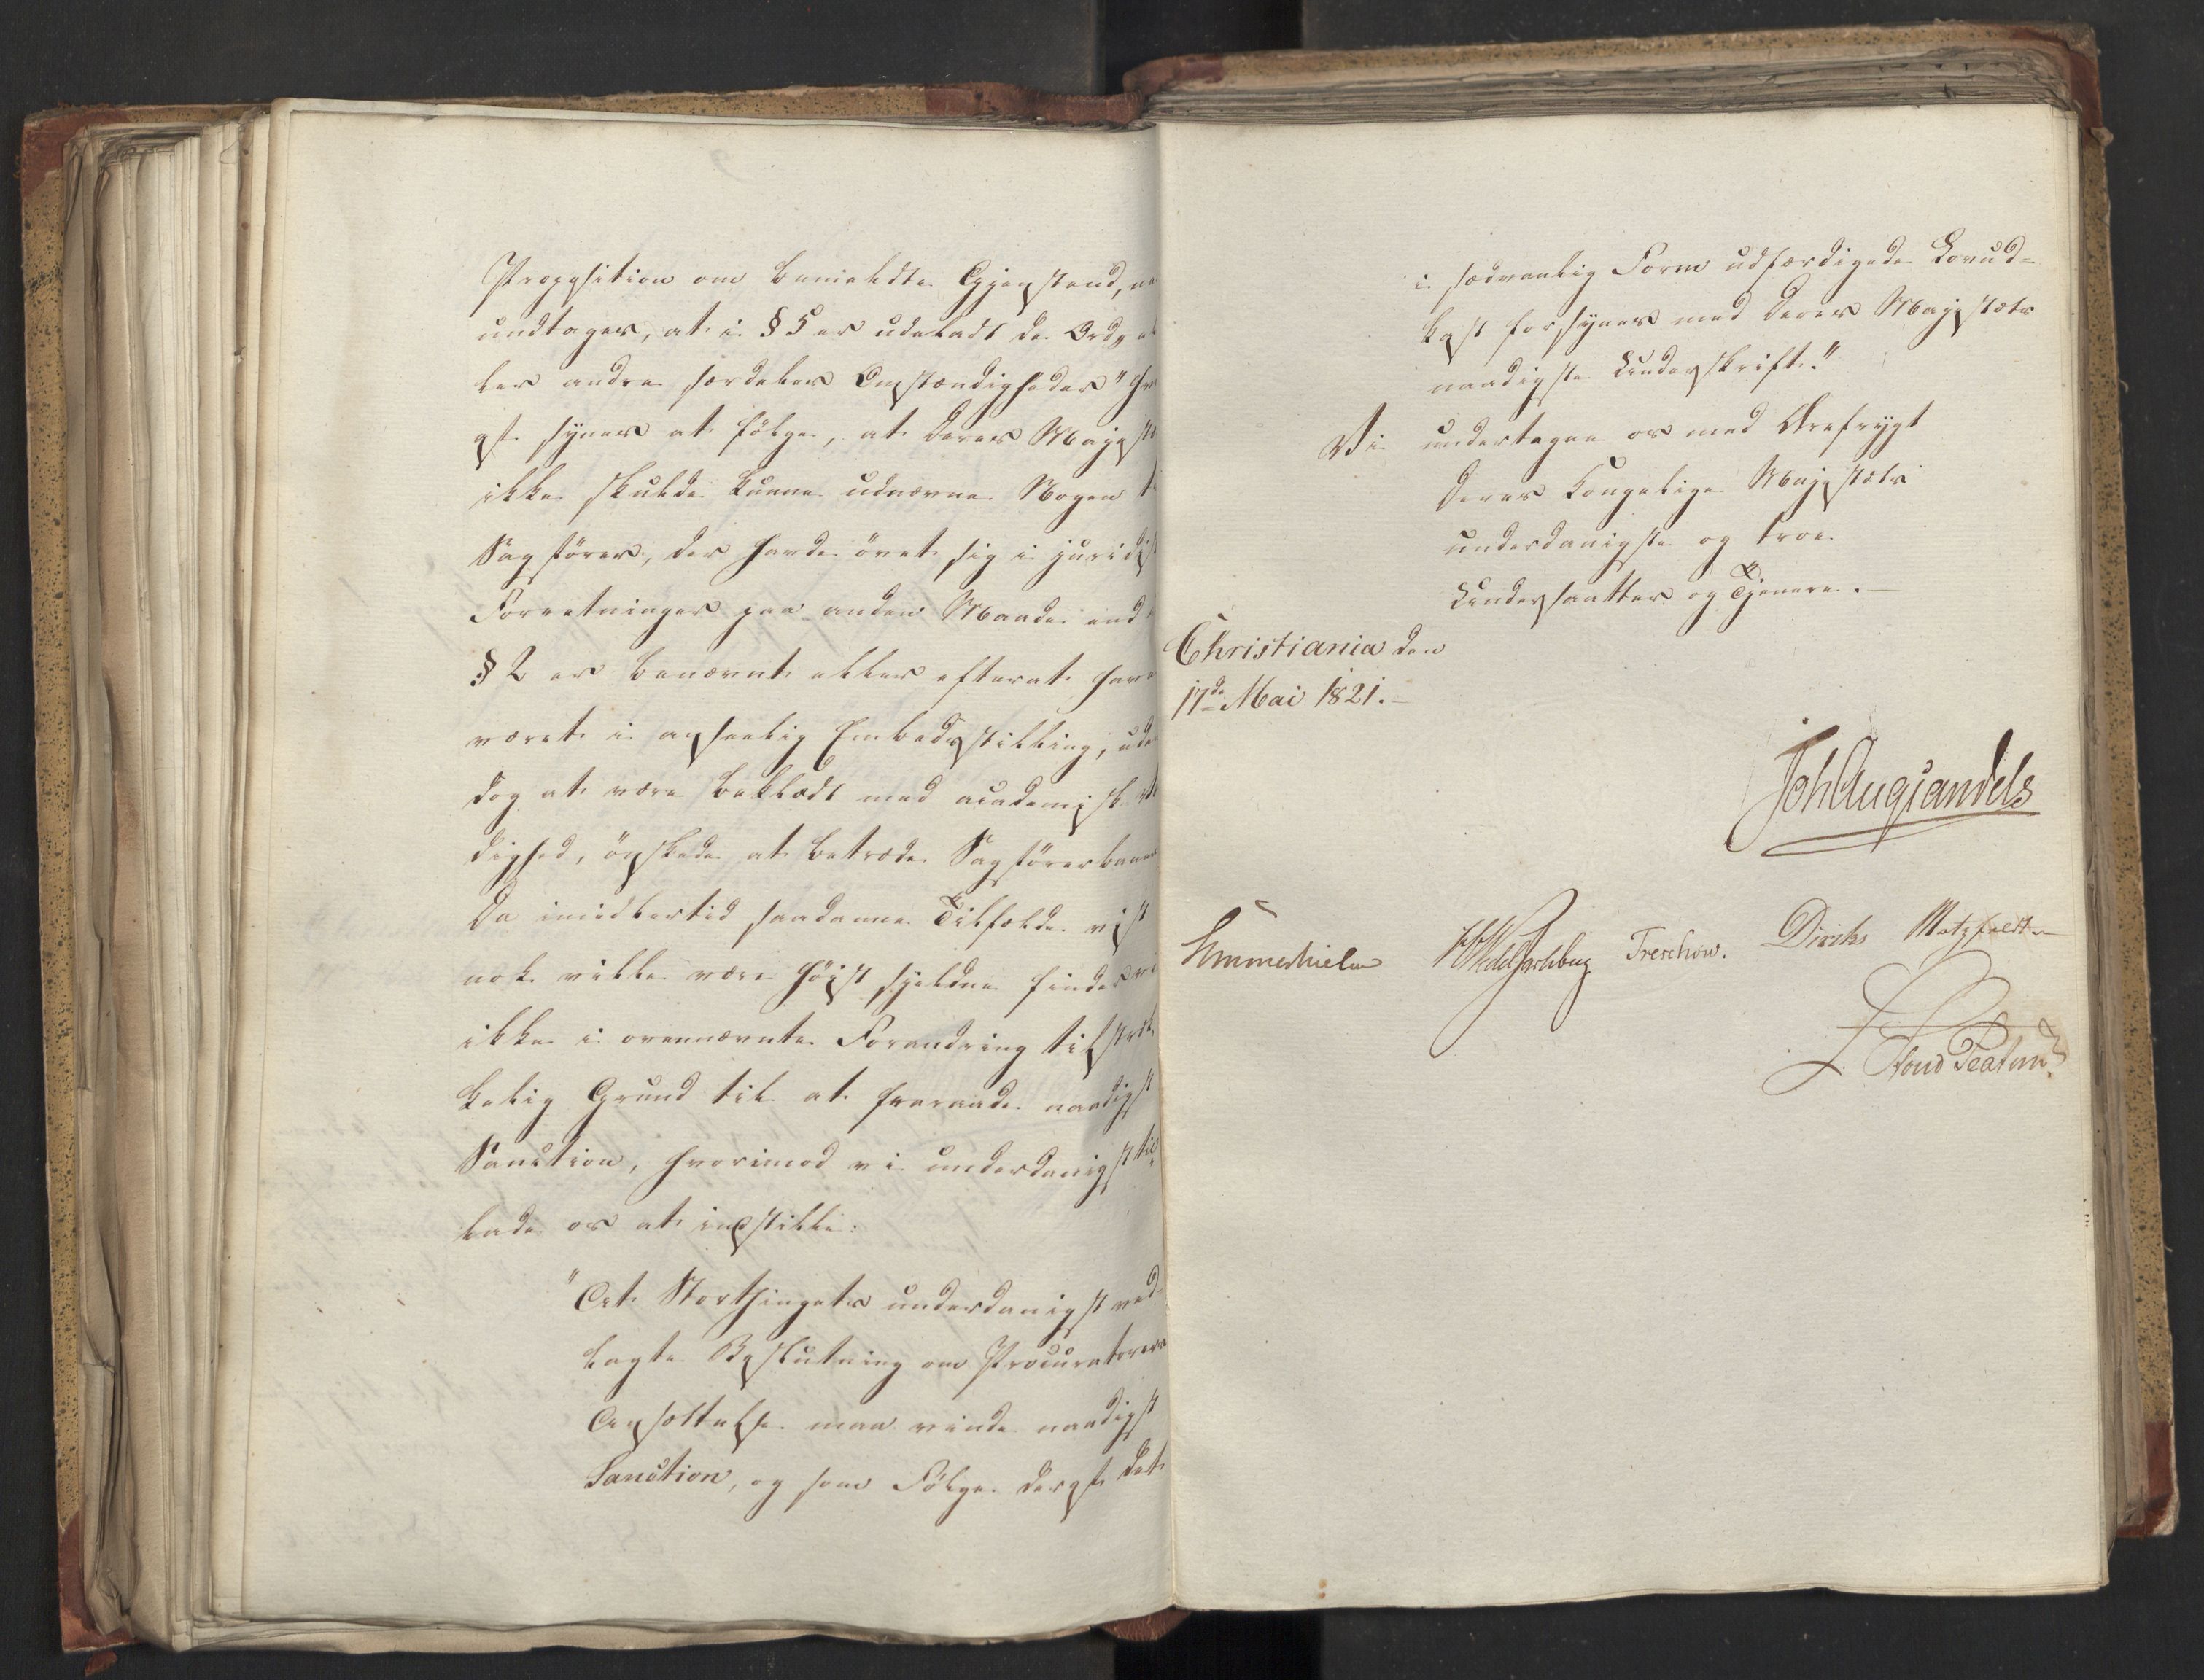 Proposition om bemeldte Gjenstand, naar
undtages, at i § 5 er udeladt de Ord "el
ler andre særdeles Omstændigheder" hvo
af synes at følge, at Deres Majest
ikke skulde kunne udnævne Nogen ti
Sagfører, der havde övet sig i juridisk
Forretninger paa anden Maade end i
§ 2 er benævnt eller efterat have
været i anseelig Embedsstilling, uden
dog at være beklædt med academisk Vær
dighed, önskede at betræde Sagförerbanen
Da imidlertid saadanne Tilfælde vist
nok ville være höist sjeldne finde vi
ikke i ovennævnte Forandring tilstræk
kelig Grund til at fraraade naadigst
Sanction, hvorimod vi underdanigst til
lade os at indstille:
"At Storthingets underdanigst ved
lagte Beslutning om Procuratorers
Ansættelse maa vinde naadigst
Sanction, og som Følge deraf det
i sædvanlig Form udfærdigede Lovud-
kast forsynes med Deres Majestæts
naadigste Underskrift."
Vi undertegne os med Ærefrygt
Deres Kongelige Majestæts
underdanigste og troe
Undersaatter og Tjenere.
Christiania den
17de Mai 1821.
Joh Aug Sandels
Sommerhielm HWedel Jarlsberg Treschow. Diriks Motzfeldt